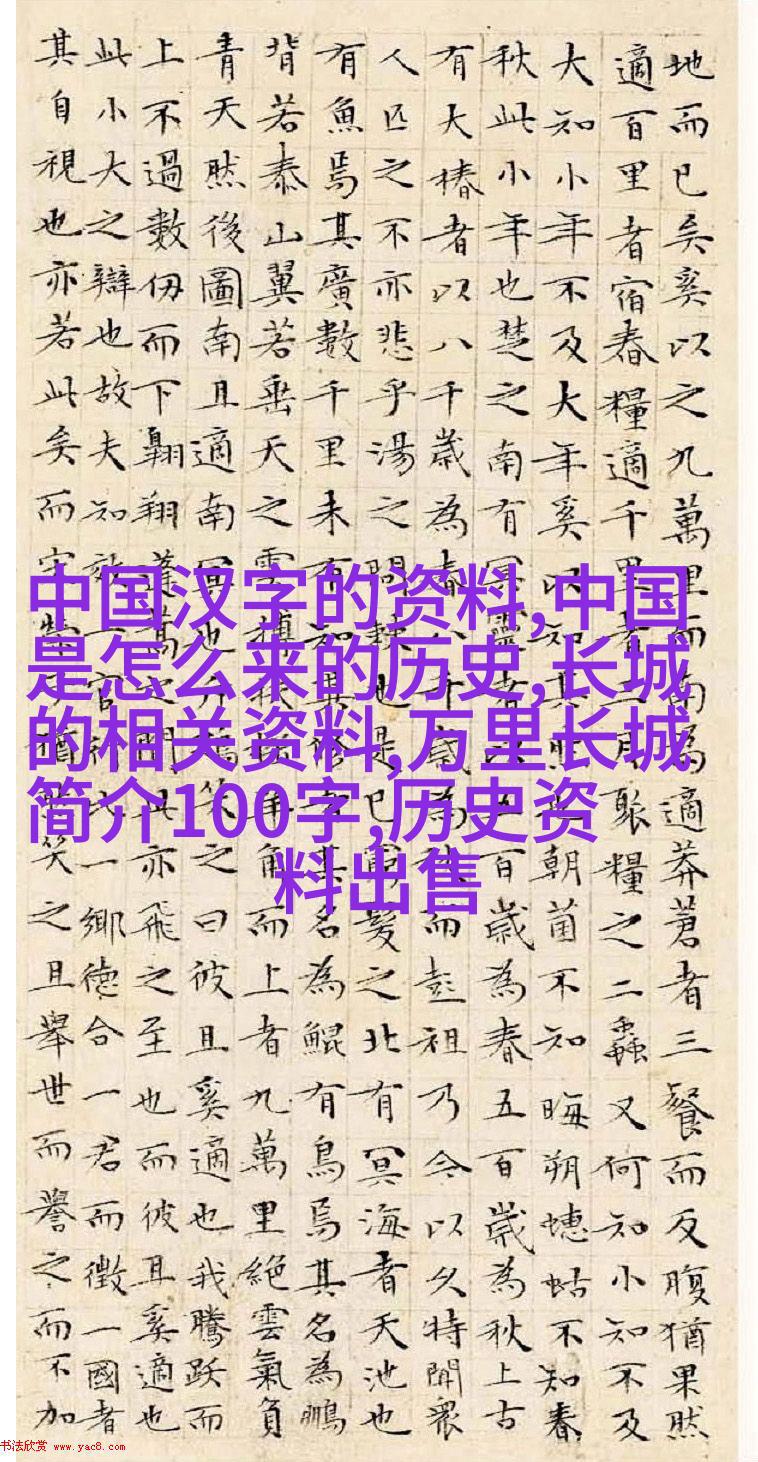 中国汉字的资料,中国
是怎么来的历史,长城
的相关资料,万里长城
简介100字,历史资
料出售
地而已矣奚以之九萬里而南為適莽蒼者三餐而反腹猶果然
適百里者宿舂糧適千里者三月聚糧之二蟲又何知小知不及
大知小年不及大年奚以知其然也朝菌不知晦朔蟪蛄不知春
秋此小年也楚之南有冥靈者以五百歲為春五百歲為秋上古
有大椿者以八千歲為春八千歲為秋而彭祖乃今以久特聞衆
人匹之不亦悲乎湯之問棘也是已窮髮之北有冥海者天池也
有魚焉其廣數千里未有知其脩者其名為鯤有鳥焉其名為鵬
背若泰山翼若垂天之雲摶扶搖羊角而上者九萬里絕雲氣負
青天然後圖南且適南冥也斥鴳笑之曰彼且奚適也我騰躍而
上不過數仞而下翱翔蓬蒿之間此亦飛之至也而彼且奚適也
此小大之辯也故夫知效一官行比一鄉德合一君而徵一國者
其自視也亦若此矣而宋榮子猶然笑之且舉世而譽之而不加
书法欣赏 www.yac8.com